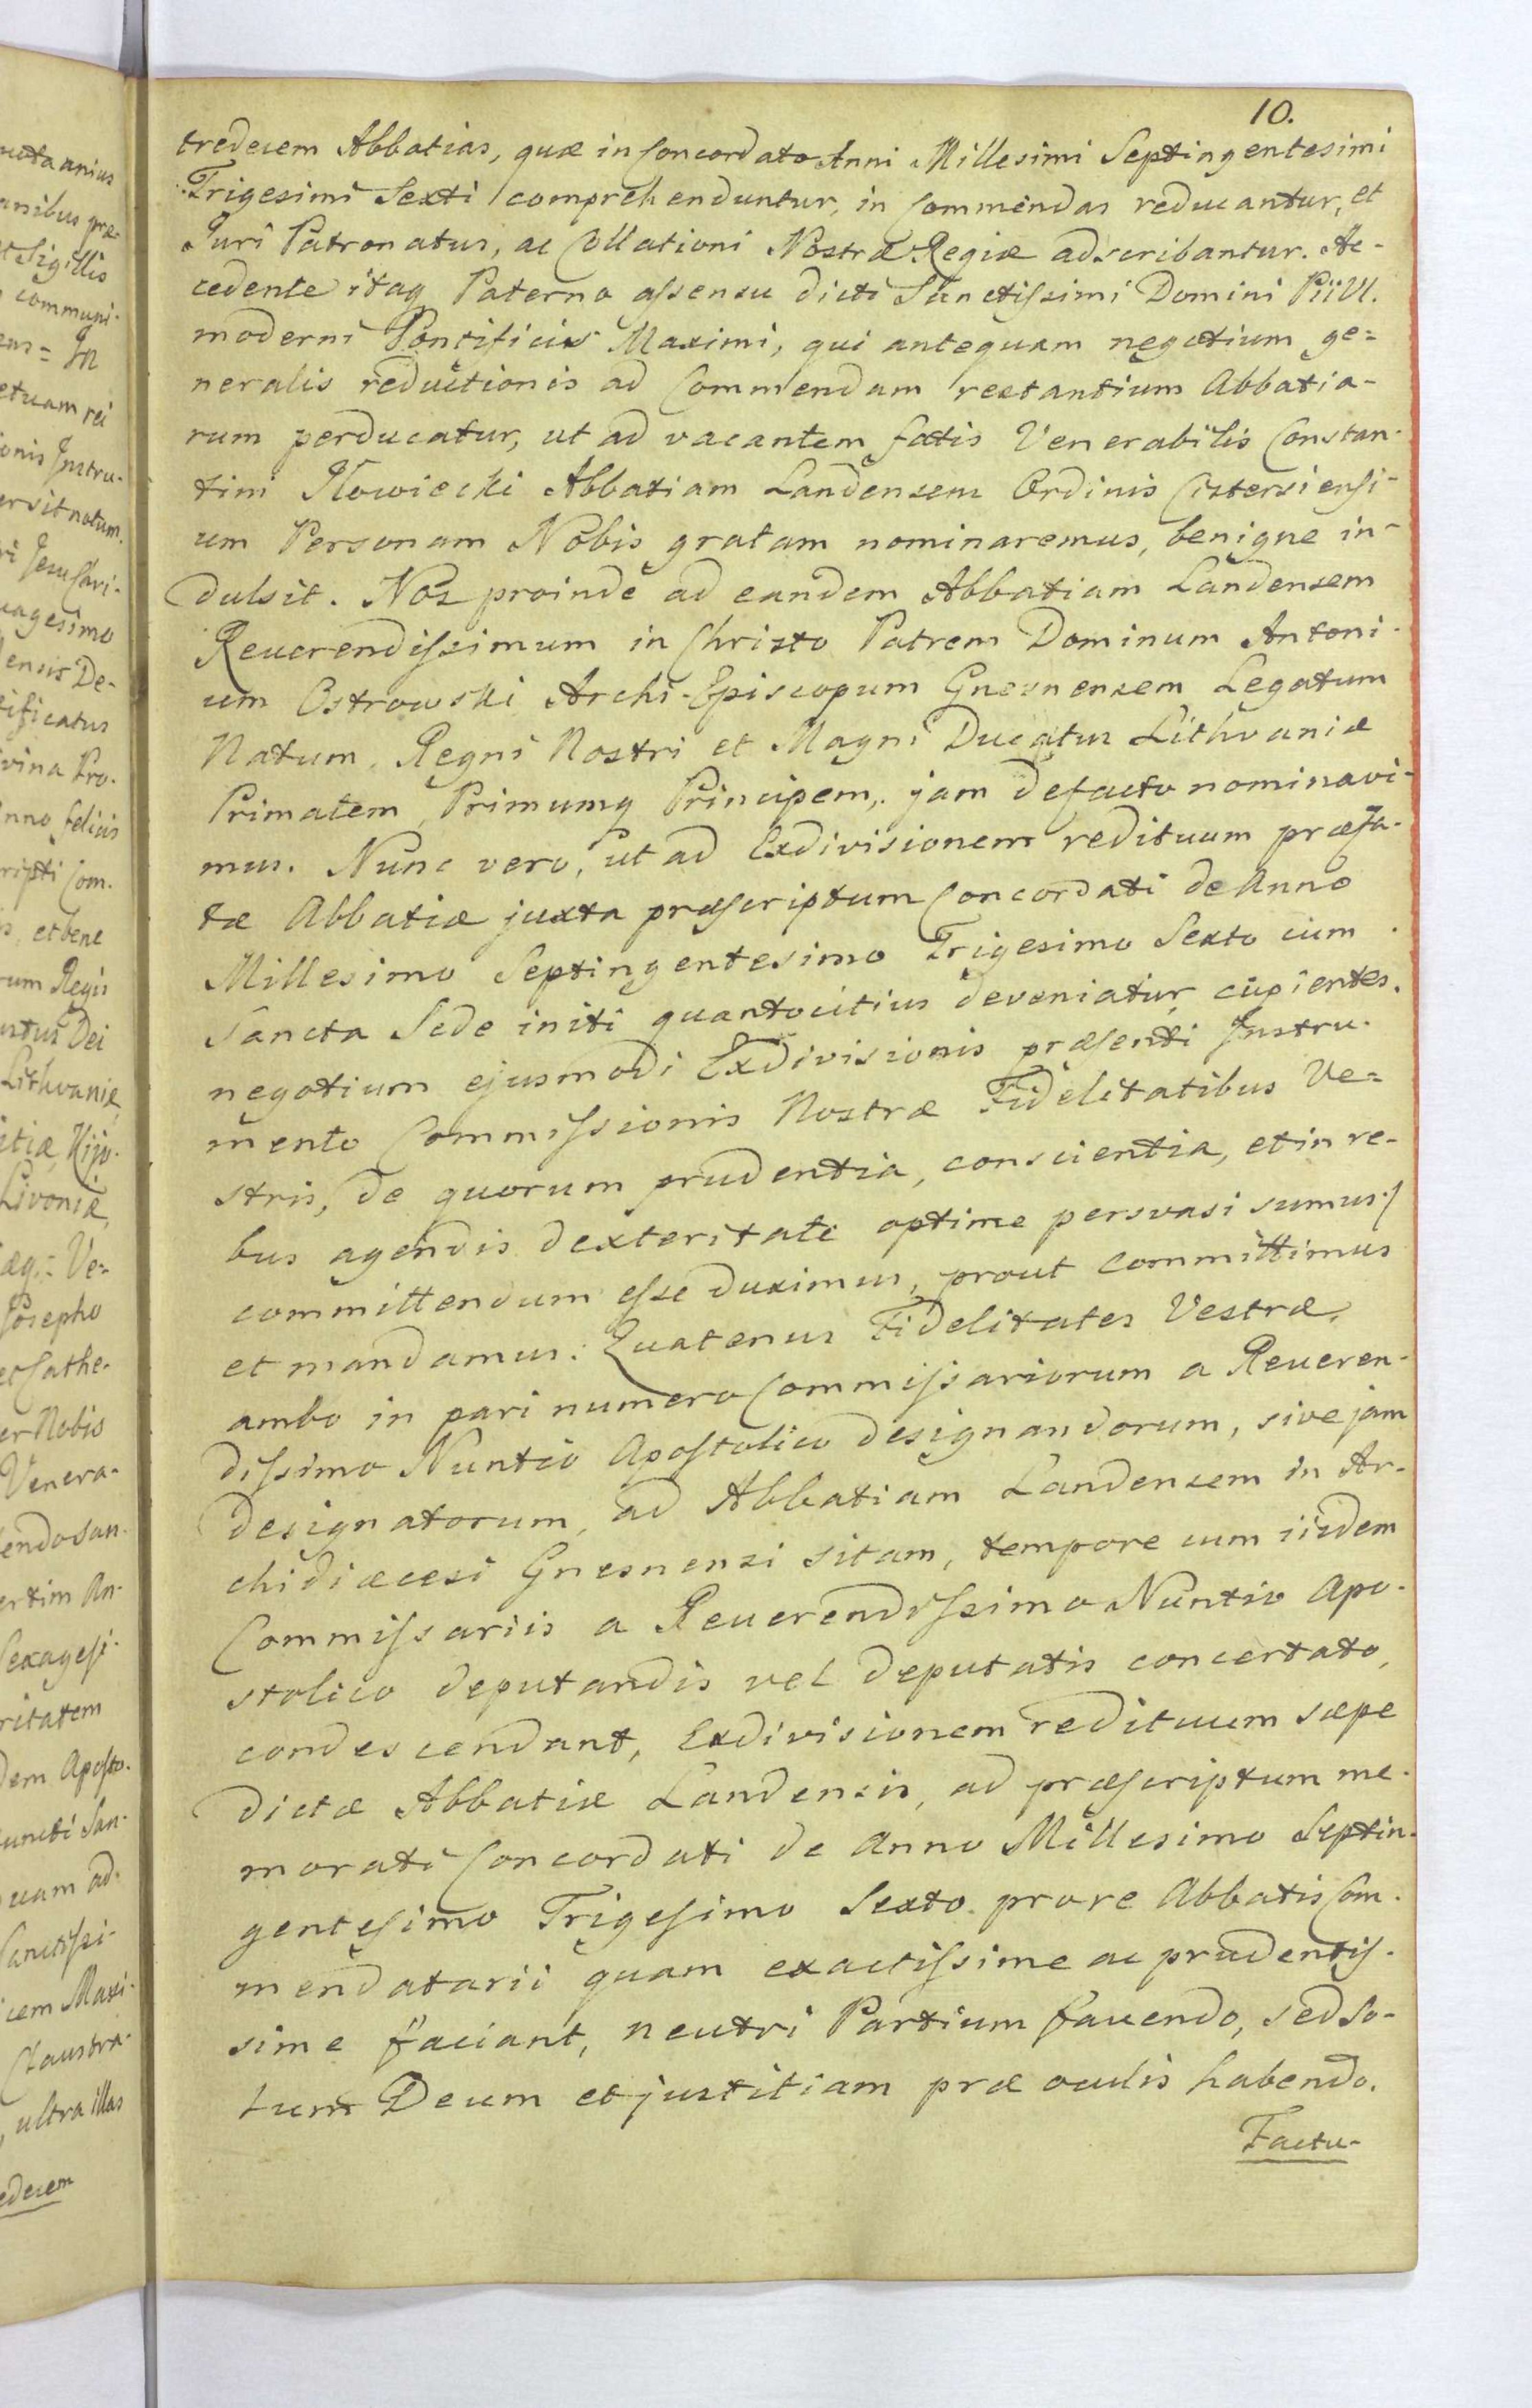 10.
tredecem Abbatias, quæ in Concordato Anni Millesimi Septingentesimi
Trigesimi Sexti comprehenduntur, in Commendas reducantur, et
Juri Patronatus, ac Collationi Nostræ Regiæ adscribantur. Ac-
cedente itaq Paterno assensu dicti Sanctissimi Domini Pii VI.
moderni Pontificis Maximi, qui antequam negotium ge=
neralis reductionis ad Commendam restantium Abbatia-
rum perducatur, ut ad vacantem fatis Venerabilis Constan-
tini Jłowiecki Abbatiam Landensem Ordinis Cistersiensi-
um Personam Nobis gratam nominaremus, benigne in-
dulsit. Nos proinde ad eandem Abbatiam Landensem
Reverendissimum in Christo Patrem Dominum Antoni-
um Ostrowski Archi-Episcopum Gnesnensem Legatum
Natum, Regni Nostri et Magni Ducatus Lithvaniæ
Primatem, Primumq Principem, jam defacto nominavi-
mus. Nunc vero, ut ad Exdivisionem redituum præfa-
tæ Abbatiæ juxta præscriptum Concordati de Anno
Millesimo Septingentesimo Trigesimo Sexto cum
Sancta Sede initi quantocitius deveniatur, cupientes.
negotium ejusmodi Exdivisionis præsenti Instru-
mento Commissionis Nostræ Fidelitatibus Ve=
stris, de quorum prudentia, conscientia, et in re-
bus agendis dexteritate optime persvasi sumus/
committendum esse duximus, prout committimus
et mandamus: Quatenus Fidelitates Vestræ,
ambo in pari numero Commissariorum a Reveren-
dissimo Nuntio Apostolico designandorum, sive jam
designatorum, ad Abbatiam Landensem in Ar-
chidiæcesi Gnesnensi sitam, tempore cum iisdem
Commissariis a Reverendissimo Nuntio Apo-
stolico deputandis vel deputatis concertato,
condescendant, Exdivisionem redituum sæpe
dictæ Abbatiæ Landensis, ad præscriptum me-
morati Concordati de Anno Millesimo Septin-
gentesimo Trigesimo Sexto pro re Abbatis Com-
mendatarii quam exactissime ac prudentis-
sime faciant, neutri Partium favendo, sed so-
lum Deum et justitiam præ oculis habendo.
Factu-